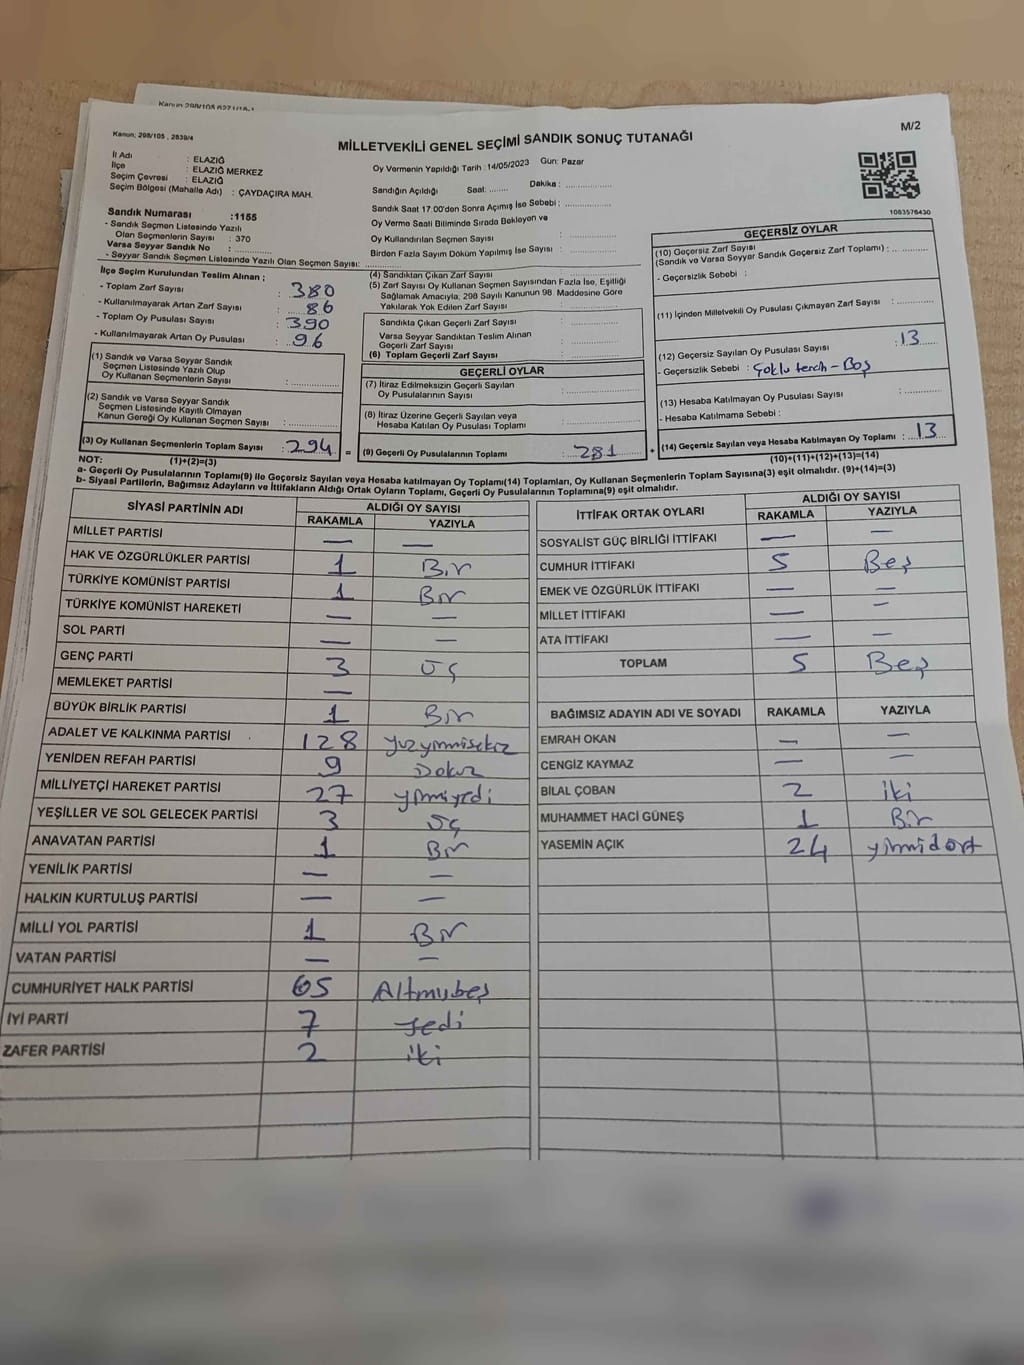 Kanun 298/105 6271/18-1
Kanun; 298/105 , 2839/4
MİLLETVEKİLİ GENEL SEÇİMİ SANDIK SONUÇ TUTANAĞI
M/2
İl Adı : ELAZIĞ
İlçe : ELAZIĞ MERKEZ
Seçim Çevresi : ELAZIĞ
Seçim Bölgesi (Mahalle Adı) : ÇAYDAÇIRA MAH.
Oy Vermenin Yapıldığı Tarih : 14/05/2023 Gün: Pazar
Sandığın Açıldığı Saat: ........ Dakika : ................
Sandık Saat 17:00'den Sonra Açımış İse Sebebi : ................
Oy Verme Saati Bitiminde Sırada Bekleyen ve
Oy Kullandırılan Seçmen Sayısı : ................
Birden Fazla Sayım Döküm Yapılmış İse Sayısı : ................
1083576430
Sandık Numarası :1155
- Sandık Seçmen Listesinde Yazılı
Olan Seçmenlerin Sayısı : 370
Varsa Seyyar Sandık No : ................
- Seyyar Sandık Seçmen Listesinde Yazılı Olan Seçmen Sayısı: ................
İlçe Seçim Kurulundan Teslim Alınan ;
- Toplam Zarf Sayısı : 380
- Kullanılmayarak Artan Zarf Sayısı : 86
- Toplam Oy Pusulası Sayısı : 390
- Kullanılmayarak Artan Oy Pusulası : 96
(1) Sandık ve Varsa Seyyar Sandık
Seçmen Listesinde Yazılı Olup
Oy Kullanan Seçmenlerin Sayısı : ................
(2) Sandık ve Varsa Seyyar Sandık
Seçmen Listesinde Kayıtlı Olmayan
Kanun Gereği Oy Kullanan Seçmen Sayısı : ................
(3) Oy Kullanan Seçmenlerin Toplam Sayısı : 294 =
(4) Sandıktan Çıkan Zarf Sayısı : ................
(5) Zarf Sayısı Oy Kullanan Seçmen Sayısından Fazla İse, Eşitliği
Sağlamak Amacıyla, 298 Sayılı Kanunun 98. Maddesine Göre
Yakılarak Yok Edilen Zarf Sayısı : ................
Sandıkta Çıkan Geçerli Zarf Sayısı : ................
Varsa Seyyar Sandıktan Teslim Alınan
Geçerli Zarf Sayısı : ................
(6) Toplam Geçerli Zarf Sayısı : ................
GEÇERLİ OYLAR
(7) İtiraz Edilmeksizin Geçerli Sayılan
Oy Pusulasının Sayısı : ................
(8) İtiraz Üzerine Geçerli Sayılan veya
Hesaba Katılan Oy Pusulası Toplamı : ................
(9) Geçerli Oy Pusulalarının Toplamı : 281 +
GEÇERSİZ OYLAR
(10) Geçersiz Zarf Sayısı
(Sandık ve Varsa Seyyar Sandık Geçersiz Zarf Toplamı) : ................
- Geçersizlik Sebebi :
(11) İçinden Milletvekili Oy Pusulası Çıkmayan Zarf Sayısı : ................
(12) Geçersiz Sayılan Oy Pusulası Sayısı : 13
- Geçersizlik Sebebi : Çoklu tercih - Boş
(13) Hesaba Katılmayan Oy Pusulası Sayısı : ................
- Hesaba Katılmama Sebebi :
(14) Geçersiz Sayılan veya Hesaba Katılmayan Oy Toplamı : 13
NOT: (1)+(2)=(3) (10)+(11)+(12)+(13)=(14)
a- Geçerli Oy Pusulalarının Toplamı(9) ile Geçersiz Sayılan veya Hesaba katılmayan Oy Toplamı(14) Toplamları, Oy Kullanan Seçmenlerin Toplam Sayısına(3) eşit olmalıdır. (9)+(14)=(3)
b- Siyasi Partilerin, Bağımsız Adayların ve İttifakların Aldığı Ortak Oyların Toplamı, Geçerli Oy Pusulalarının Toplamına(9) eşit olmalıdır.
SİYASİ PARTİNİN ADI ALDIĞI OY SAYISI
RAKAMLA YAZIYLA
MİLLET PARTİSİ — —
HAK VE ÖZGÜRLÜKLER PARTİSİ 1 Bir
TÜRKİYE KOMÜNİST PARTİSİ 1 Bir
TÜRKİYE KOMÜNİST HAREKETİ — —
SOL PARTİ — —
GENÇ PARTİ 3 üç
MEMLEKET PARTİSİ —
BÜYÜK BİRLİK PARTİSİ 1 Bir
ADALET VE KALKINMA PARTİSİ 128 yüzyirmisekiz
YENİDEN REFAH PARTİSİ 9 Dokuz
MİLLİYETÇİ HAREKET PARTİSİ 27 yirmiyedi
YEŞİLLER VE SOL GELECEK PARTİSİ 3 üç
ANAVATAN PARTİSİ 1 Bir
YENİLİK PARTİSİ — —
HALKIN KURTULUŞ PARTİSİ — —
MİLLİ YOL PARTİSİ 1 Bir
VATAN PARTİSİ — —
CUMHURİYET HALK PARTİSİ 65 Altmışbeş
İYİ PARTİ 7 Yedi
ZAFER PARTİSİ 2 iki
İTTİFAK ORTAK OYLARI ALDIĞI OY SAYISI
RAKAMLA YAZIYLA
SOSYALİST GÜÇ BİRLİĞİ İTTİFAKI — —
CUMHUR İTTİFAKI 5 Beş
EMEK VE ÖZGÜRLÜK İTTİFAKI — —
MİLLET İTTİFAKI — —
ATA İTTİFAKI — —
TOPLAM 5 Beş
BAĞIMSIZ ADAYIN ADI VE SOYADI RAKAMLA YAZIYLA
EMRAH OKAN — —
CENGİZ KAYMAZ — —
BİLAL ÇOBAN 2 iki
MUHAMMET HACİ GÜNEŞ 1 Bir
YASEMİN AÇIK 24 yirmidört